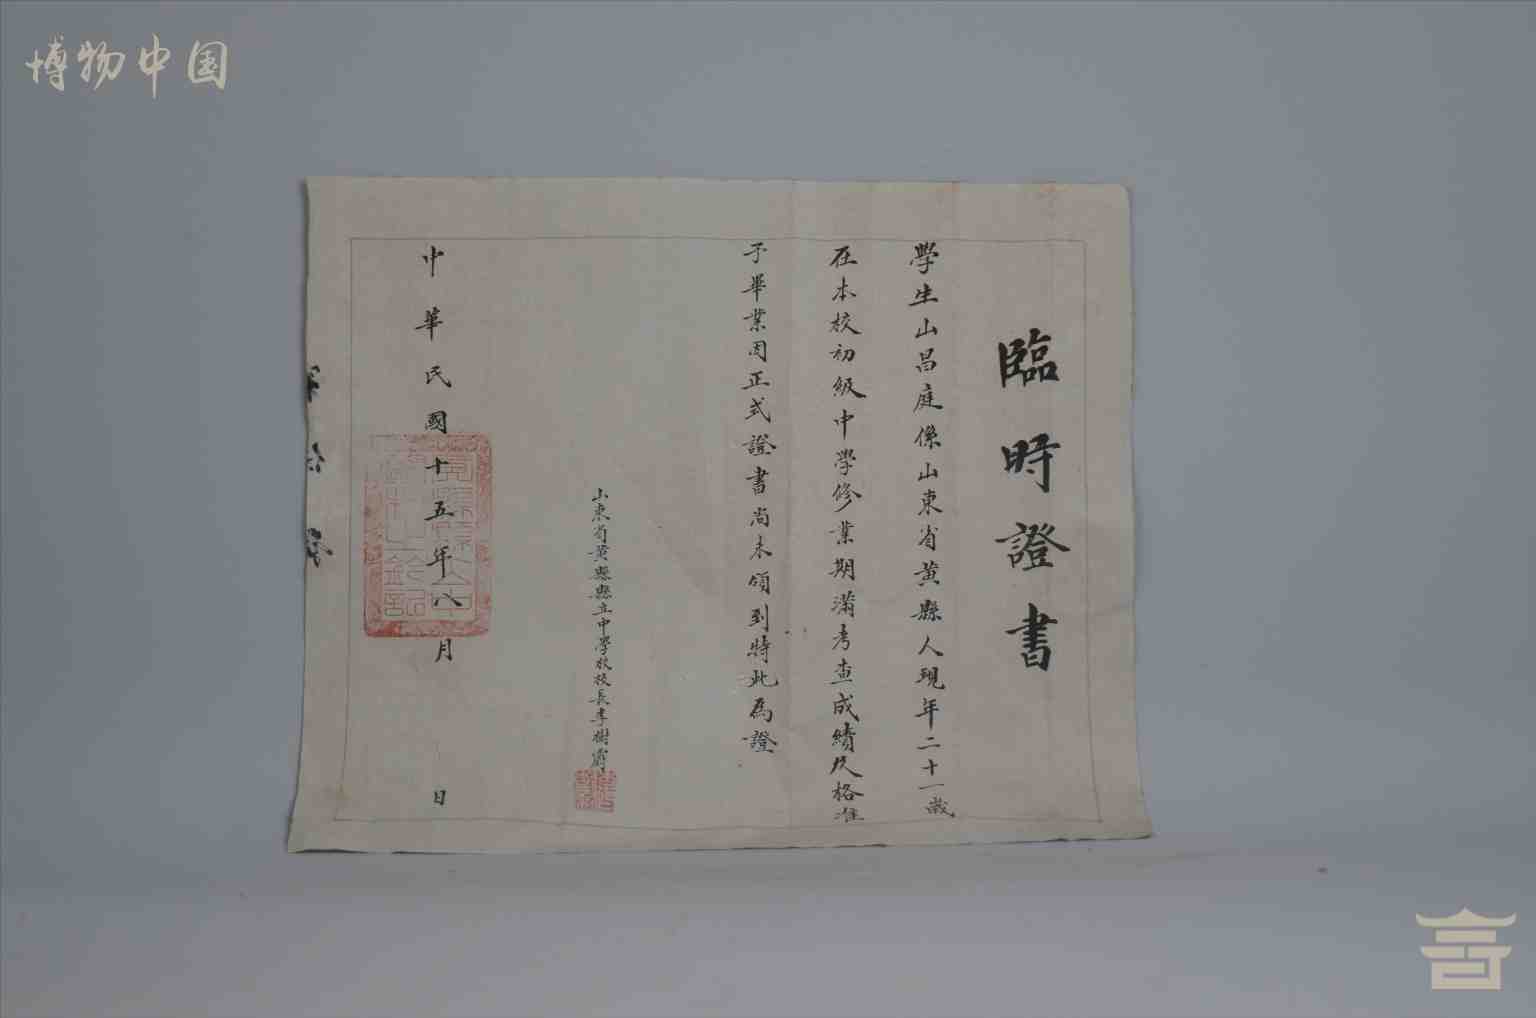 博物中国
臨時證書
學生山昌庭係山東省黃縣人現年二十一歲
在本校初級中學修業期滿考查成績及格准
予畢業因正式證書尚未頒到特此為證
山東省黃縣縣立中學校校長李樹
中華民國十五年八月 日